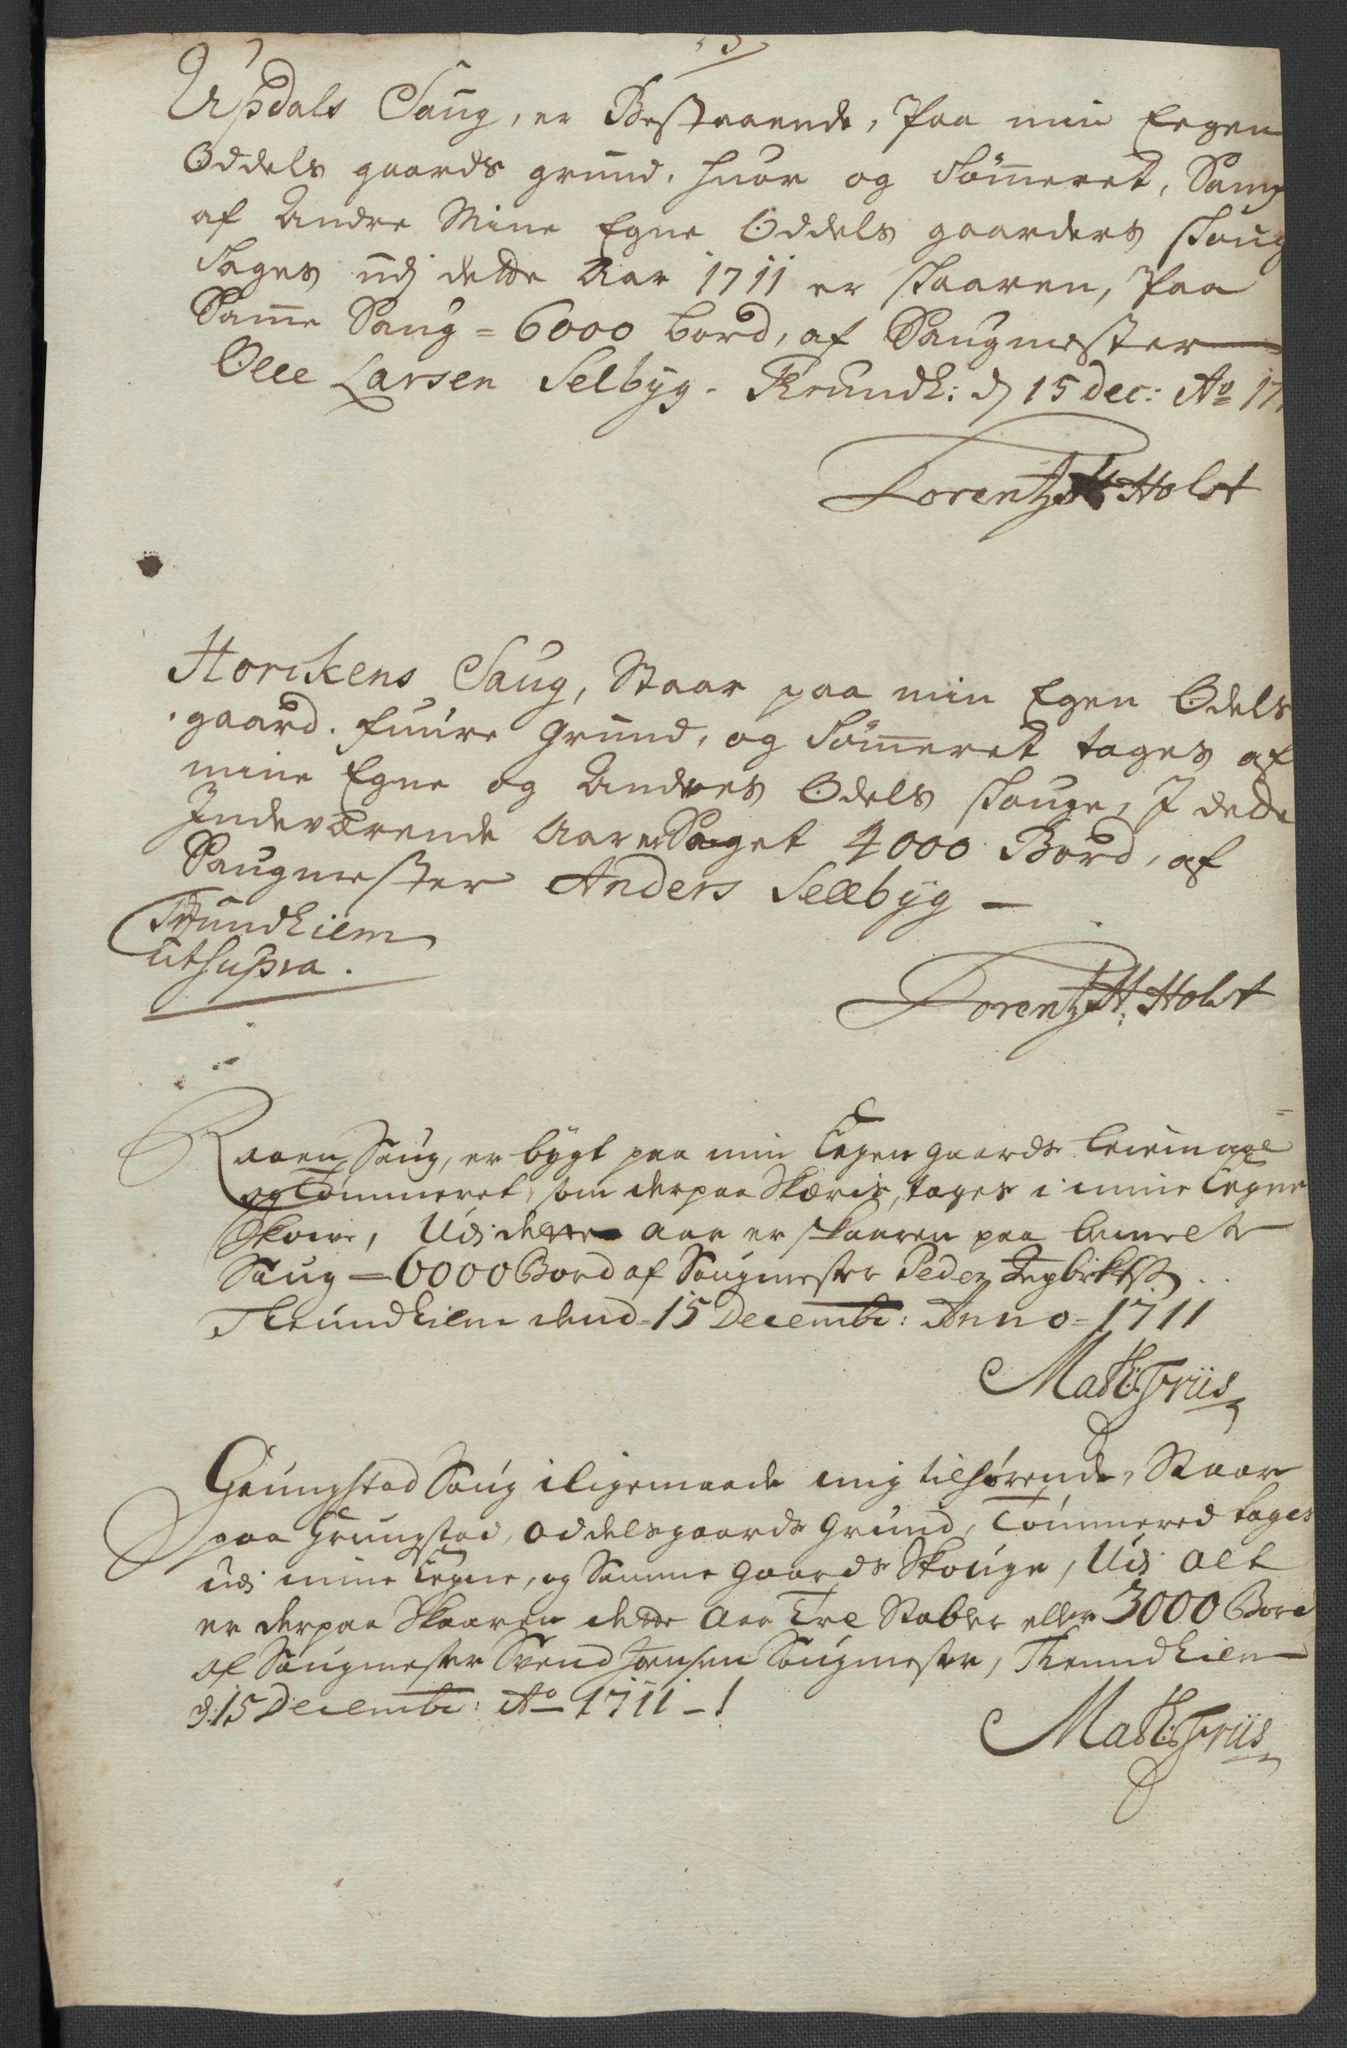 Updals Saug, er Bestaaende, Paa min Eegen
Oddels gaards grund, huor og Tømeret, Samt
af Andre Mine Egne Oddels gaarders skoug
tages udj dette Aar 1711 er skaaren, Paa
Same Saug = 6000 bord, af Saugmester
Olle Larsen Selbyg. Trundh: d 15 dec: Ao 17
Lorentz M Holst
Storckens Saug, Staar paa min Egen Odels
gaard. fuure Grund, og Tømeret tages af
mine Egne og Andres Odels skouge, I dette
Indeværende Aar er Saget 4000 Bord, af
Saugmester Anders Sellbyg
Trundhiem
ut supra.
Lorentz M: Holst
Raaen Saug, er bygt paa min Eegen gaards
og Tømmeret, som derpaa Skæris, tages i mine Eegne
Skove, Udi dette Aar er skaaren paa bemelte
Saug = 6000 Bord af Saugmester Peder
Trundhiem dend = 15 Decembr: Anno = 1711
Math: Friis
Grungstad Saug iligemaade mig tilhørende, Staar
paa Grungstad, oddelsgaards Grund, Tømmered tages
udi mine Eegne, og Samme Gaards Skouge, Udi alt
er derpaa Skaaren dette Aar Tre Stabler eller 3000 Bord
af Saugmester Svend Jensen Saugmester, Trundhiem
d: 15 Decembr: Ao 1711
Math: Friis